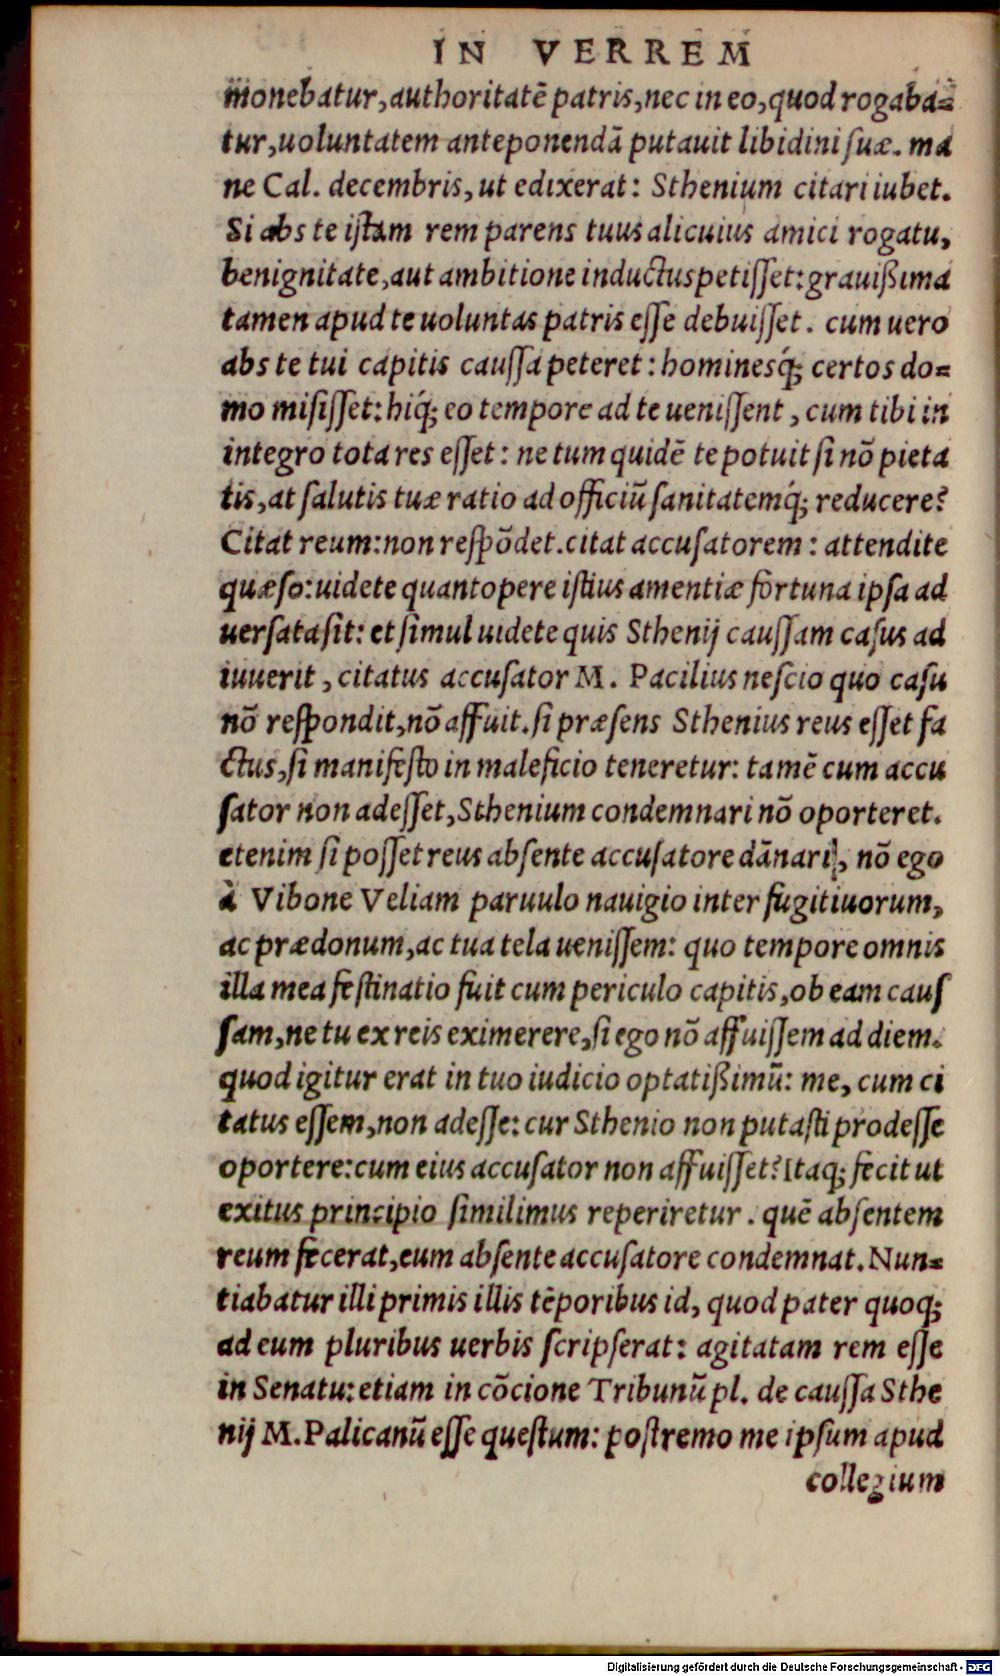 IN VERREM
monebatur, authoritatē patris, nec in eo, quod rogaba-
tur, uoluntatem anteponendā putauit libidini suæ. ma
ne Cal. decembris, ut edixerat: Sthenium citari iubet.
Si abs te istam rem parens tuus alicuius amici rogatu,
benignitate, aut ambitione inductus petisset: grauißima
tamen apud te uoluntas patris esse debuisset. cum uero
abs te tui capitis caussa peteret: hominesq́; certos do-
mo misisset: hiq́; eo tempore ad te uenissent, cum tibi in
integro tota res esset: ne tum quidē te potuit si nō pieta
tis, at salutis tuæ ratio ad officiū sanitatemq́; reducere?
Citat reum: non respōdet. citat accusatorem: attendite
quæso: uidete quantopere istius amentiæ fortuna ipsa ad
uersata sit: et simul uidete quis Sthenij caussam casus ad
iuuerit, citatus accusator M. Pacilius nescio quo casu
nō respondit, nō affuit. si præsens Sthenius reus esset fa
ctus, si manifesto in maleficio teneretur: tamē cum accu
sator non adesset, Sthenium condemnari nō oporteret.
etenim si posset reus absente accusatore dānari, nō ego
à Vibone Veliam paruulo nauigio inter fugitiuorum,
ac prædonum, ac tua tela uenissem: quo tempore omnis
illa mea festinatio fuit cum periculo capitis, ob eam caus
sam, ne tu ex reis eximerere, si ego nō affuissem ad diem.
quod igitur erat in tuo iudicio optatißimū: me, cum ci
tatus essem, non adesse: cur Sthenio non putasti prodesse
oportere: cum eius accusator non affuisset? Itaq; fecit ut
exitus principio similimus reperiretur. quē absentem
reum fecerat, eum absente accusatore condemnat. Nun-
tiabatur illi primis illis tēporibus id, quod pater quoq;
ad eum pluribus uerbis scripserat: agitatam rem esse
in Senatu: etiam in cōcione Tribunū pl. de caussa Sthe
nij M. Palicanū esse questum: postremo me ipsum apud
collegium
Digitalisierung gefördert durch die Deutsche Forschungsgemeinschaft - DFG